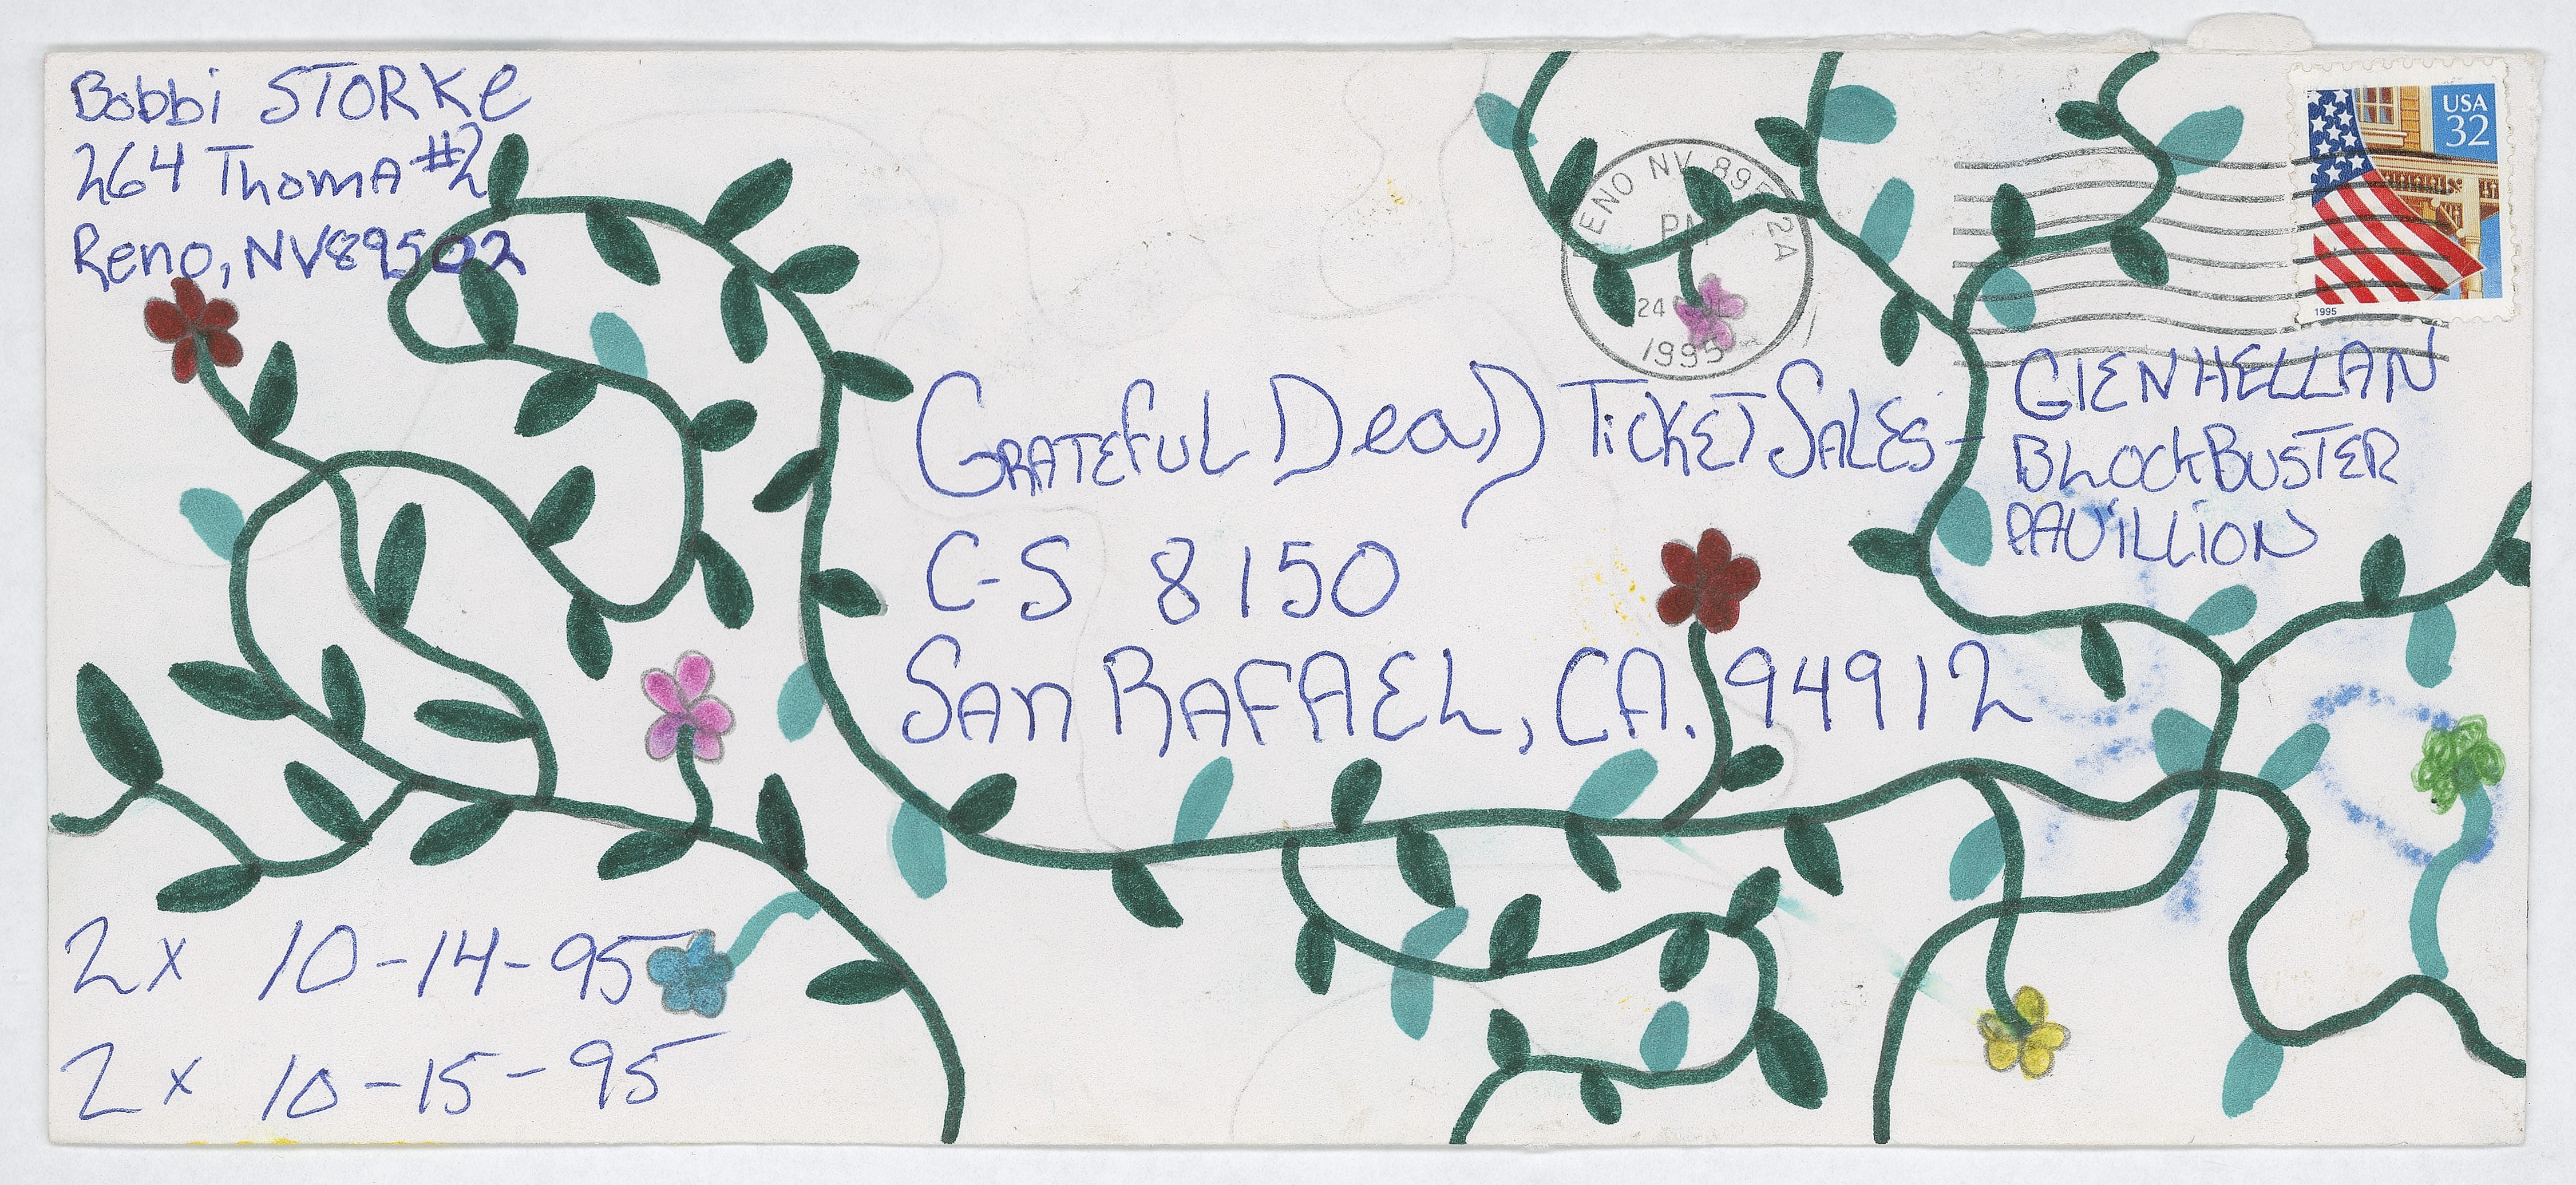 Bobbi STORKE
264 Thoma #2
Reno, NV 89502
USA
32
1995
RENO NV 895 2A
PM
24 JUL
1995
GRATEFUL DeaD TiCKET SALES-
C-S 8150
SAn RAFAEL, CA. 94912
GlENHELLAN
BLOCKBUSTER
PAVILLION
2x 10-14-95
2x 10-15-95